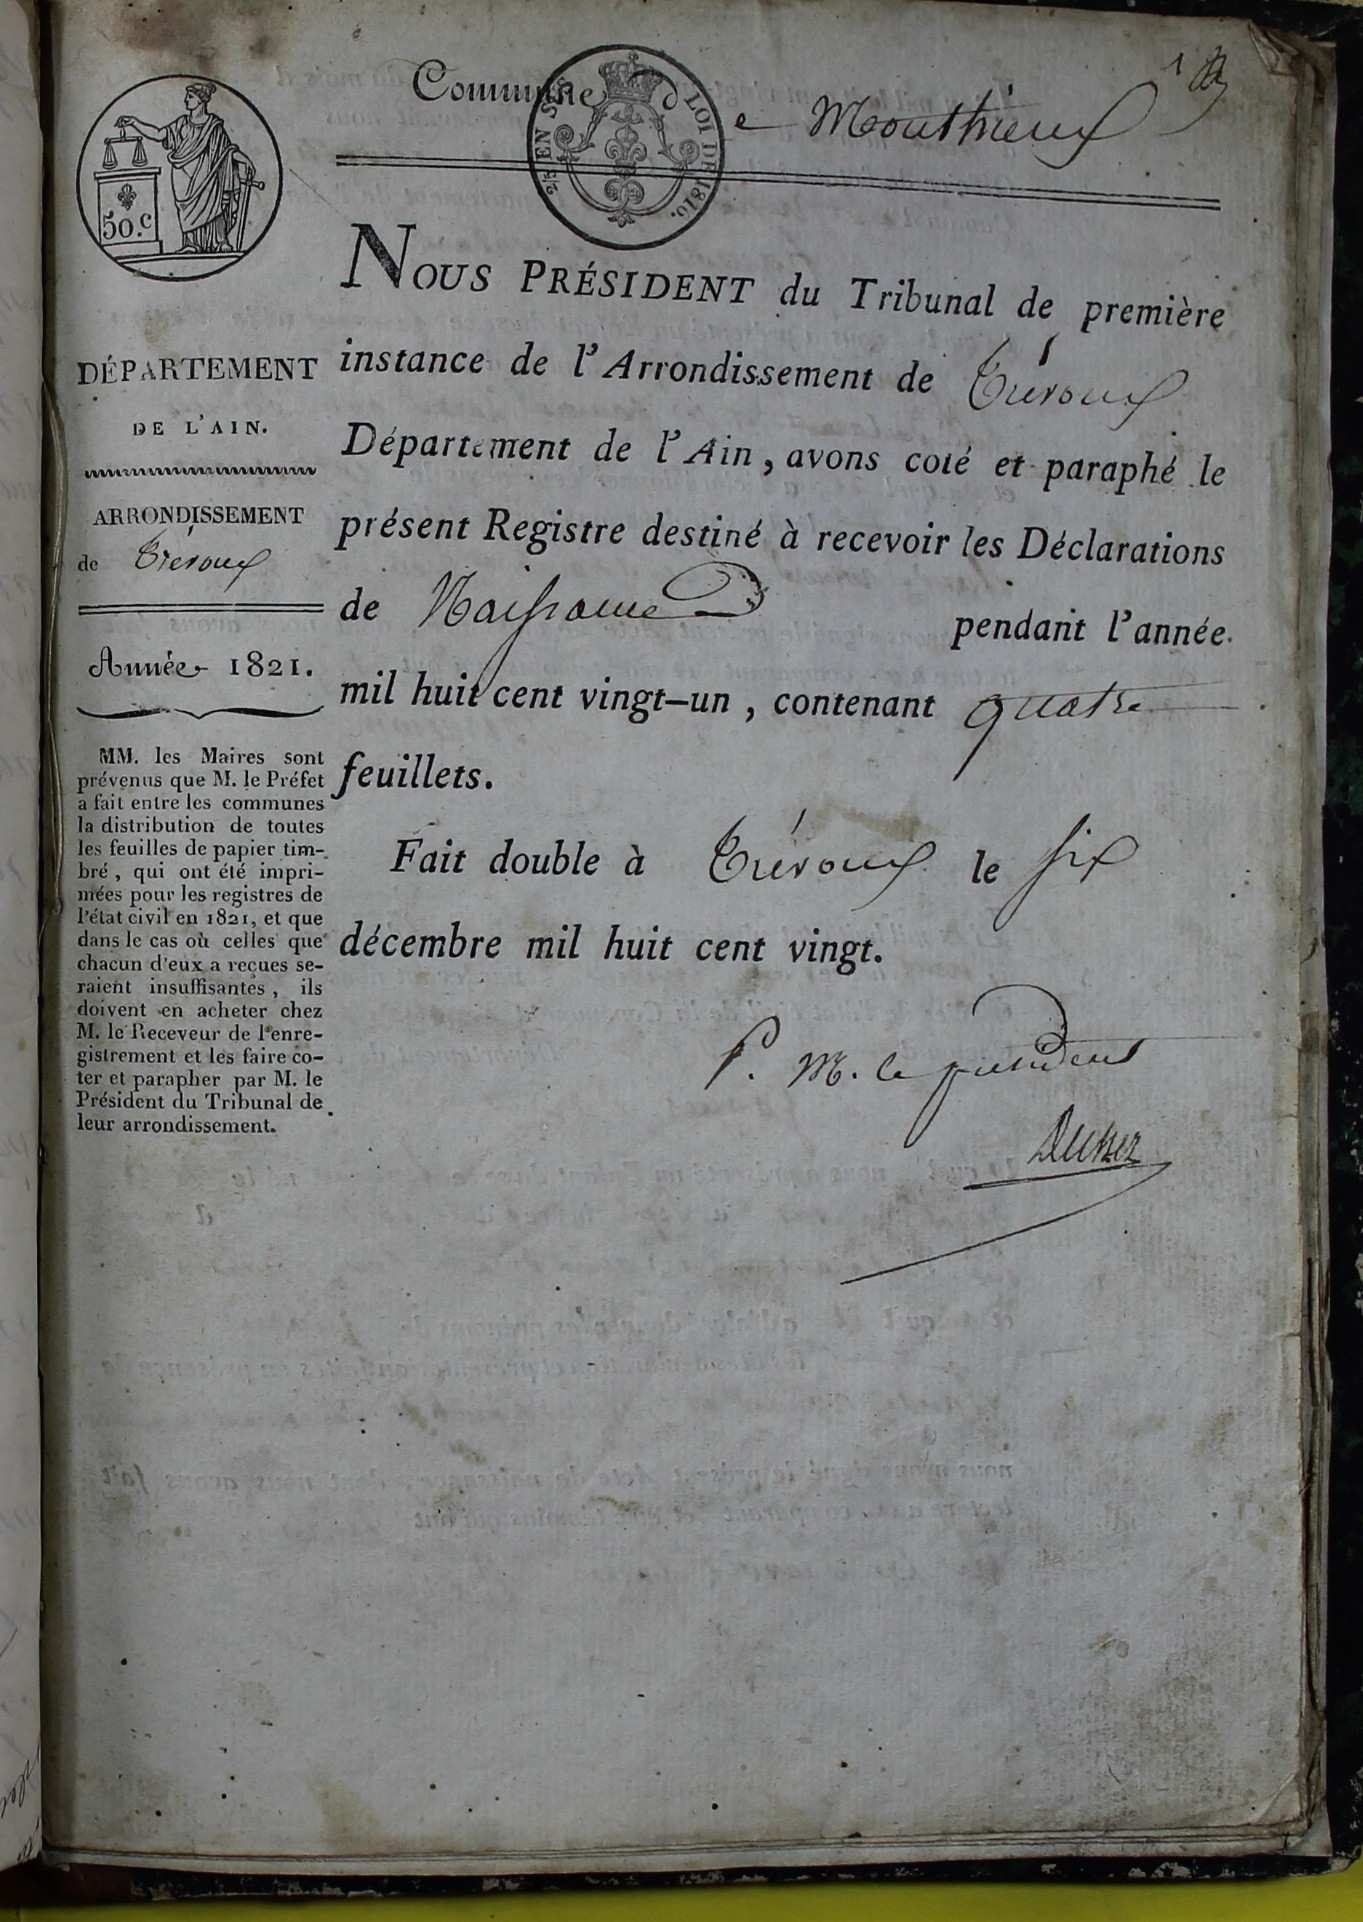 Commune de Monthieux
1
2e. EN SUS LOI DE 1816.
50.c
DÉPARTEMENT
DE L'AIN.
ARRONDISSEMENT
de Trévoux
Année 1821.
MM. les Maires sont
prévenus que M. le Préfet
a fait entre les communes
la distribution de toutes
les feuilles de papier tim-
bré, qui ont été impri-
mées pour les registres de
l'état civil en 1821, et que
dans le cas où celles que
chacun d'eux a reçues se-
raient insuffisantes, ils
doivent en acheter chez
M. le Receveur de l'enre-
gistrement et les faire co-
ter et parapher par M. le
Président du Tribunal de
leur arrondissement.
NOUS PRÉSIDENT du Tribunal de première
instance de l'Arrondissement de Trévoux
Département de l'Ain, avons coté et paraphé le
présent Registre destiné à recevoir les Déclarations
de Naissance pendant l'année
mil huit cent vingt-un, contenant quatre
feuillets.
Fait double à Trévoux le six
décembre mil huit cent vingt.
P. M. le président